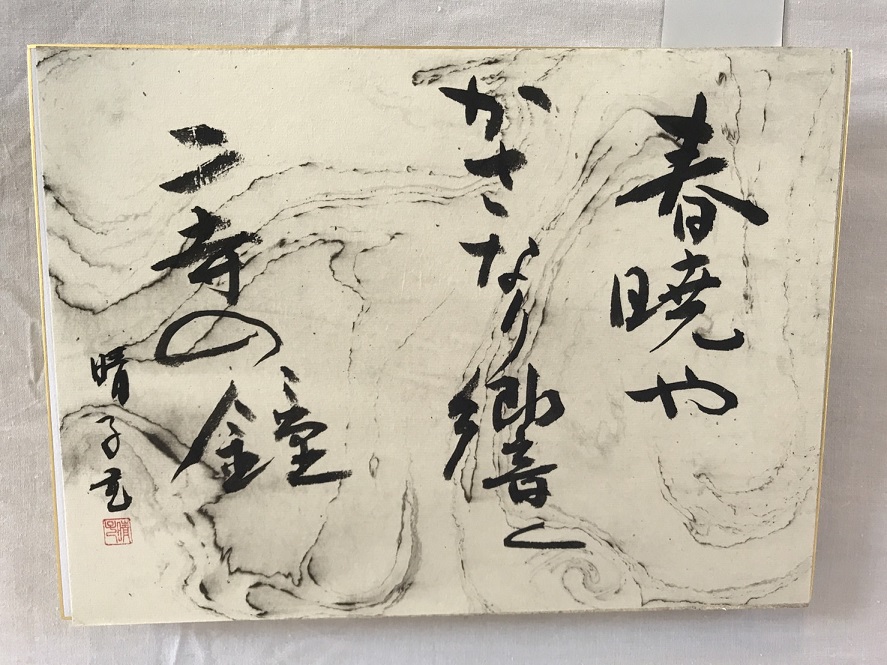 春暁や
かさなり響く
二寺の鐘
晴子